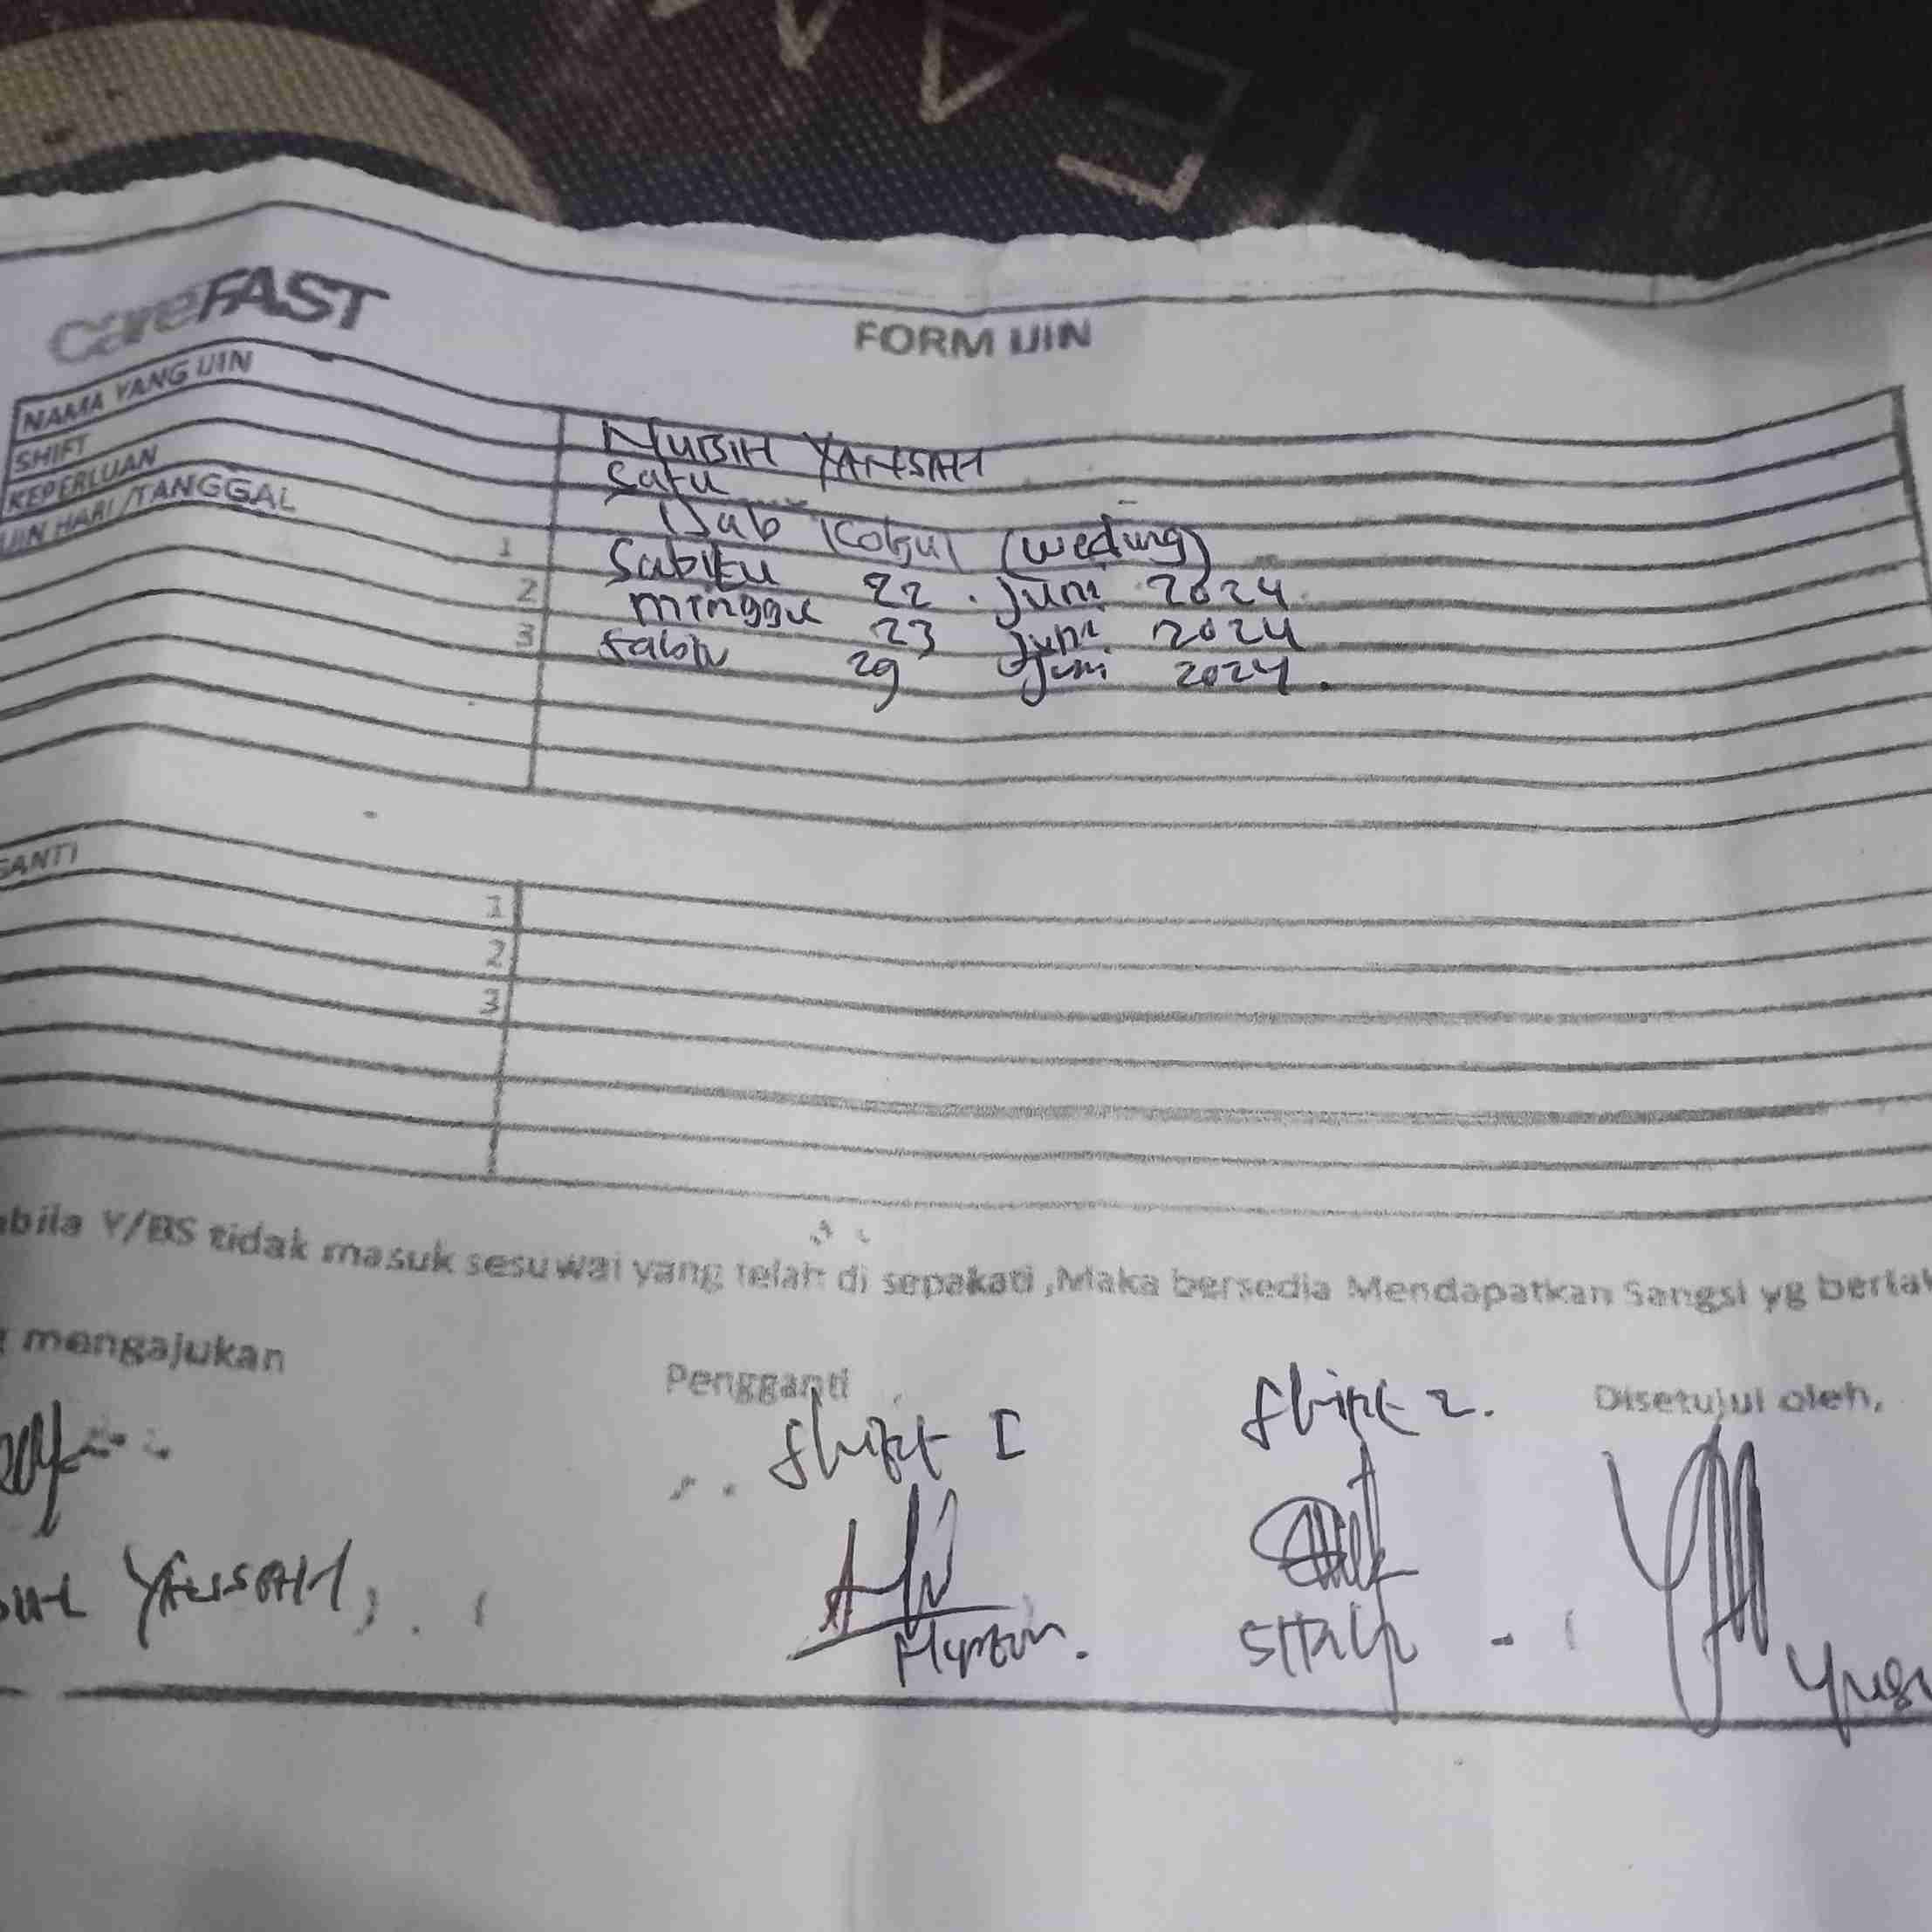 careFAST
FORM IJIN
NAMA YANG IJIN NUBIH YANSAH
SHIFT Satu
KEPERLUAN (wedung)
IJIN HARI/TANGGAL
1 Sabtu 22 . Juni 2024
2 minggu 23 Juni 2024
3 Sabtu 29 Juni 2024 .
GANTI
1
2
3
bila Y/BS tidak masuk sesuwai yang telah di sepakati ,Maka bersedia Mendapatkan Sangsi yg berlak
mengajukan Pengganti Disetujui oleh,
Shift I Shift 2.
YANSAH